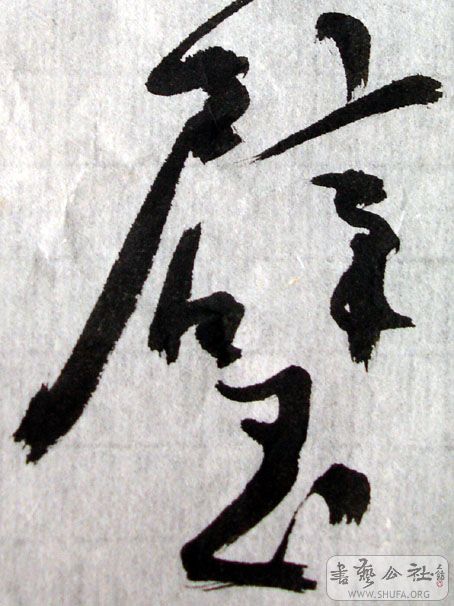 璧
書藝公社
WWW.SHUFA.ORG